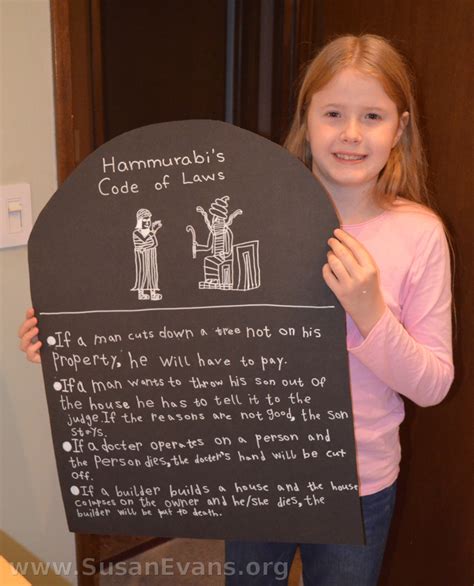 Hammurabi's
Code of Laws
If a man cuts down a tree not on his
property, he will have to pay.
If a man wants to throw his son out of
the house he has to tell it to the
judge. If the reasons are not good, the son
stays.
If a docter operates on a person and
the person dies, the docter's hand will be cut
off.
If a builder builds a house and the house
colapses on the owner and he/she dies, the
builder will be put to death.
www.SusanEvans.org